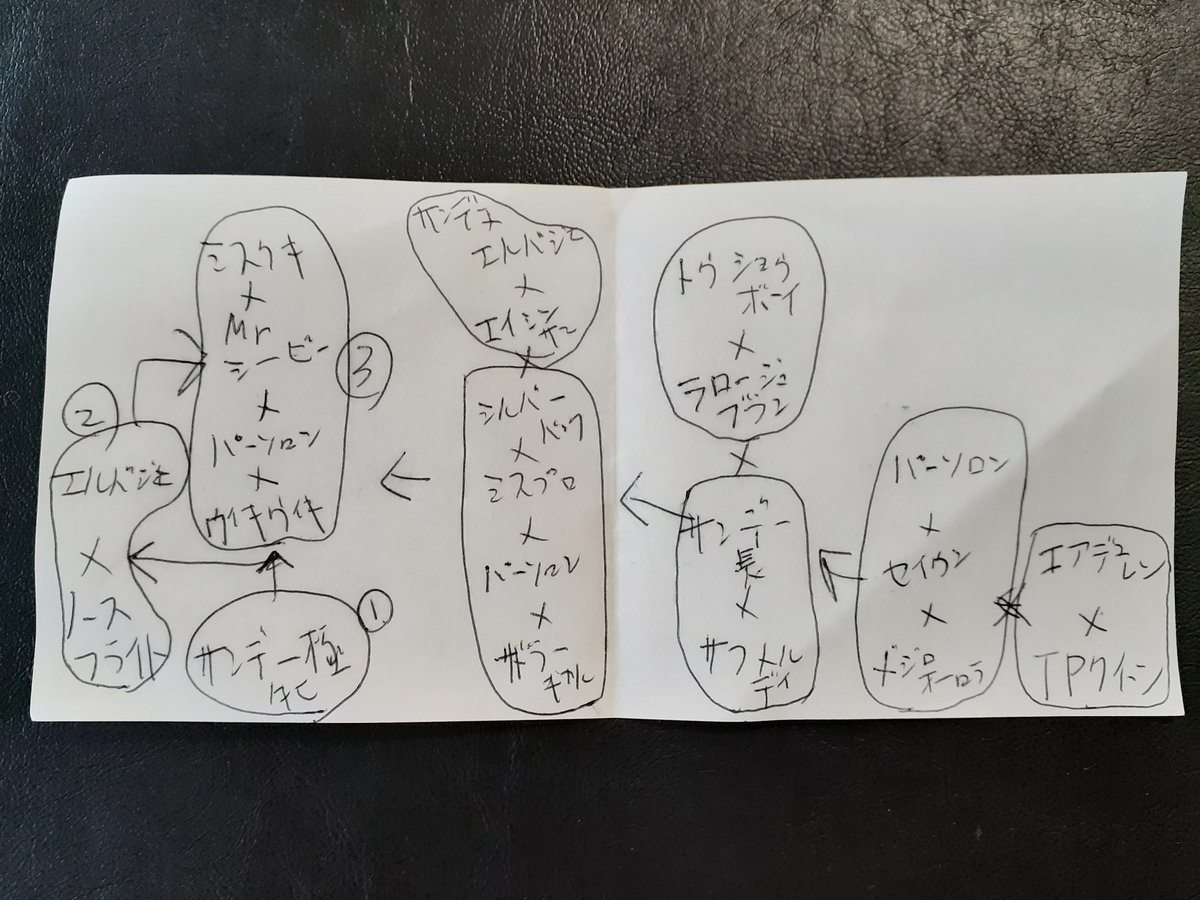 ミスワキ
×
Mr
シービー
×
パーソロン
×
ウイキウイキ
③
②
エルバジェ
×
ノース
フライト
サンデー極
①
サンデュ
エルバジェ
×
エイシン
サニー
×
シルバー
バック
×
ミスプロ
×
パーソロン
×
サドラー
ギャル
トウショウ
ボーイ
×
ラローシュ
ブラン
×
サンデー
長
×
サファメル
ディ
パーソロン
×
セイウン
×
メジロ
オーロラ
×
エアデュ
レン
×
TPクイーン